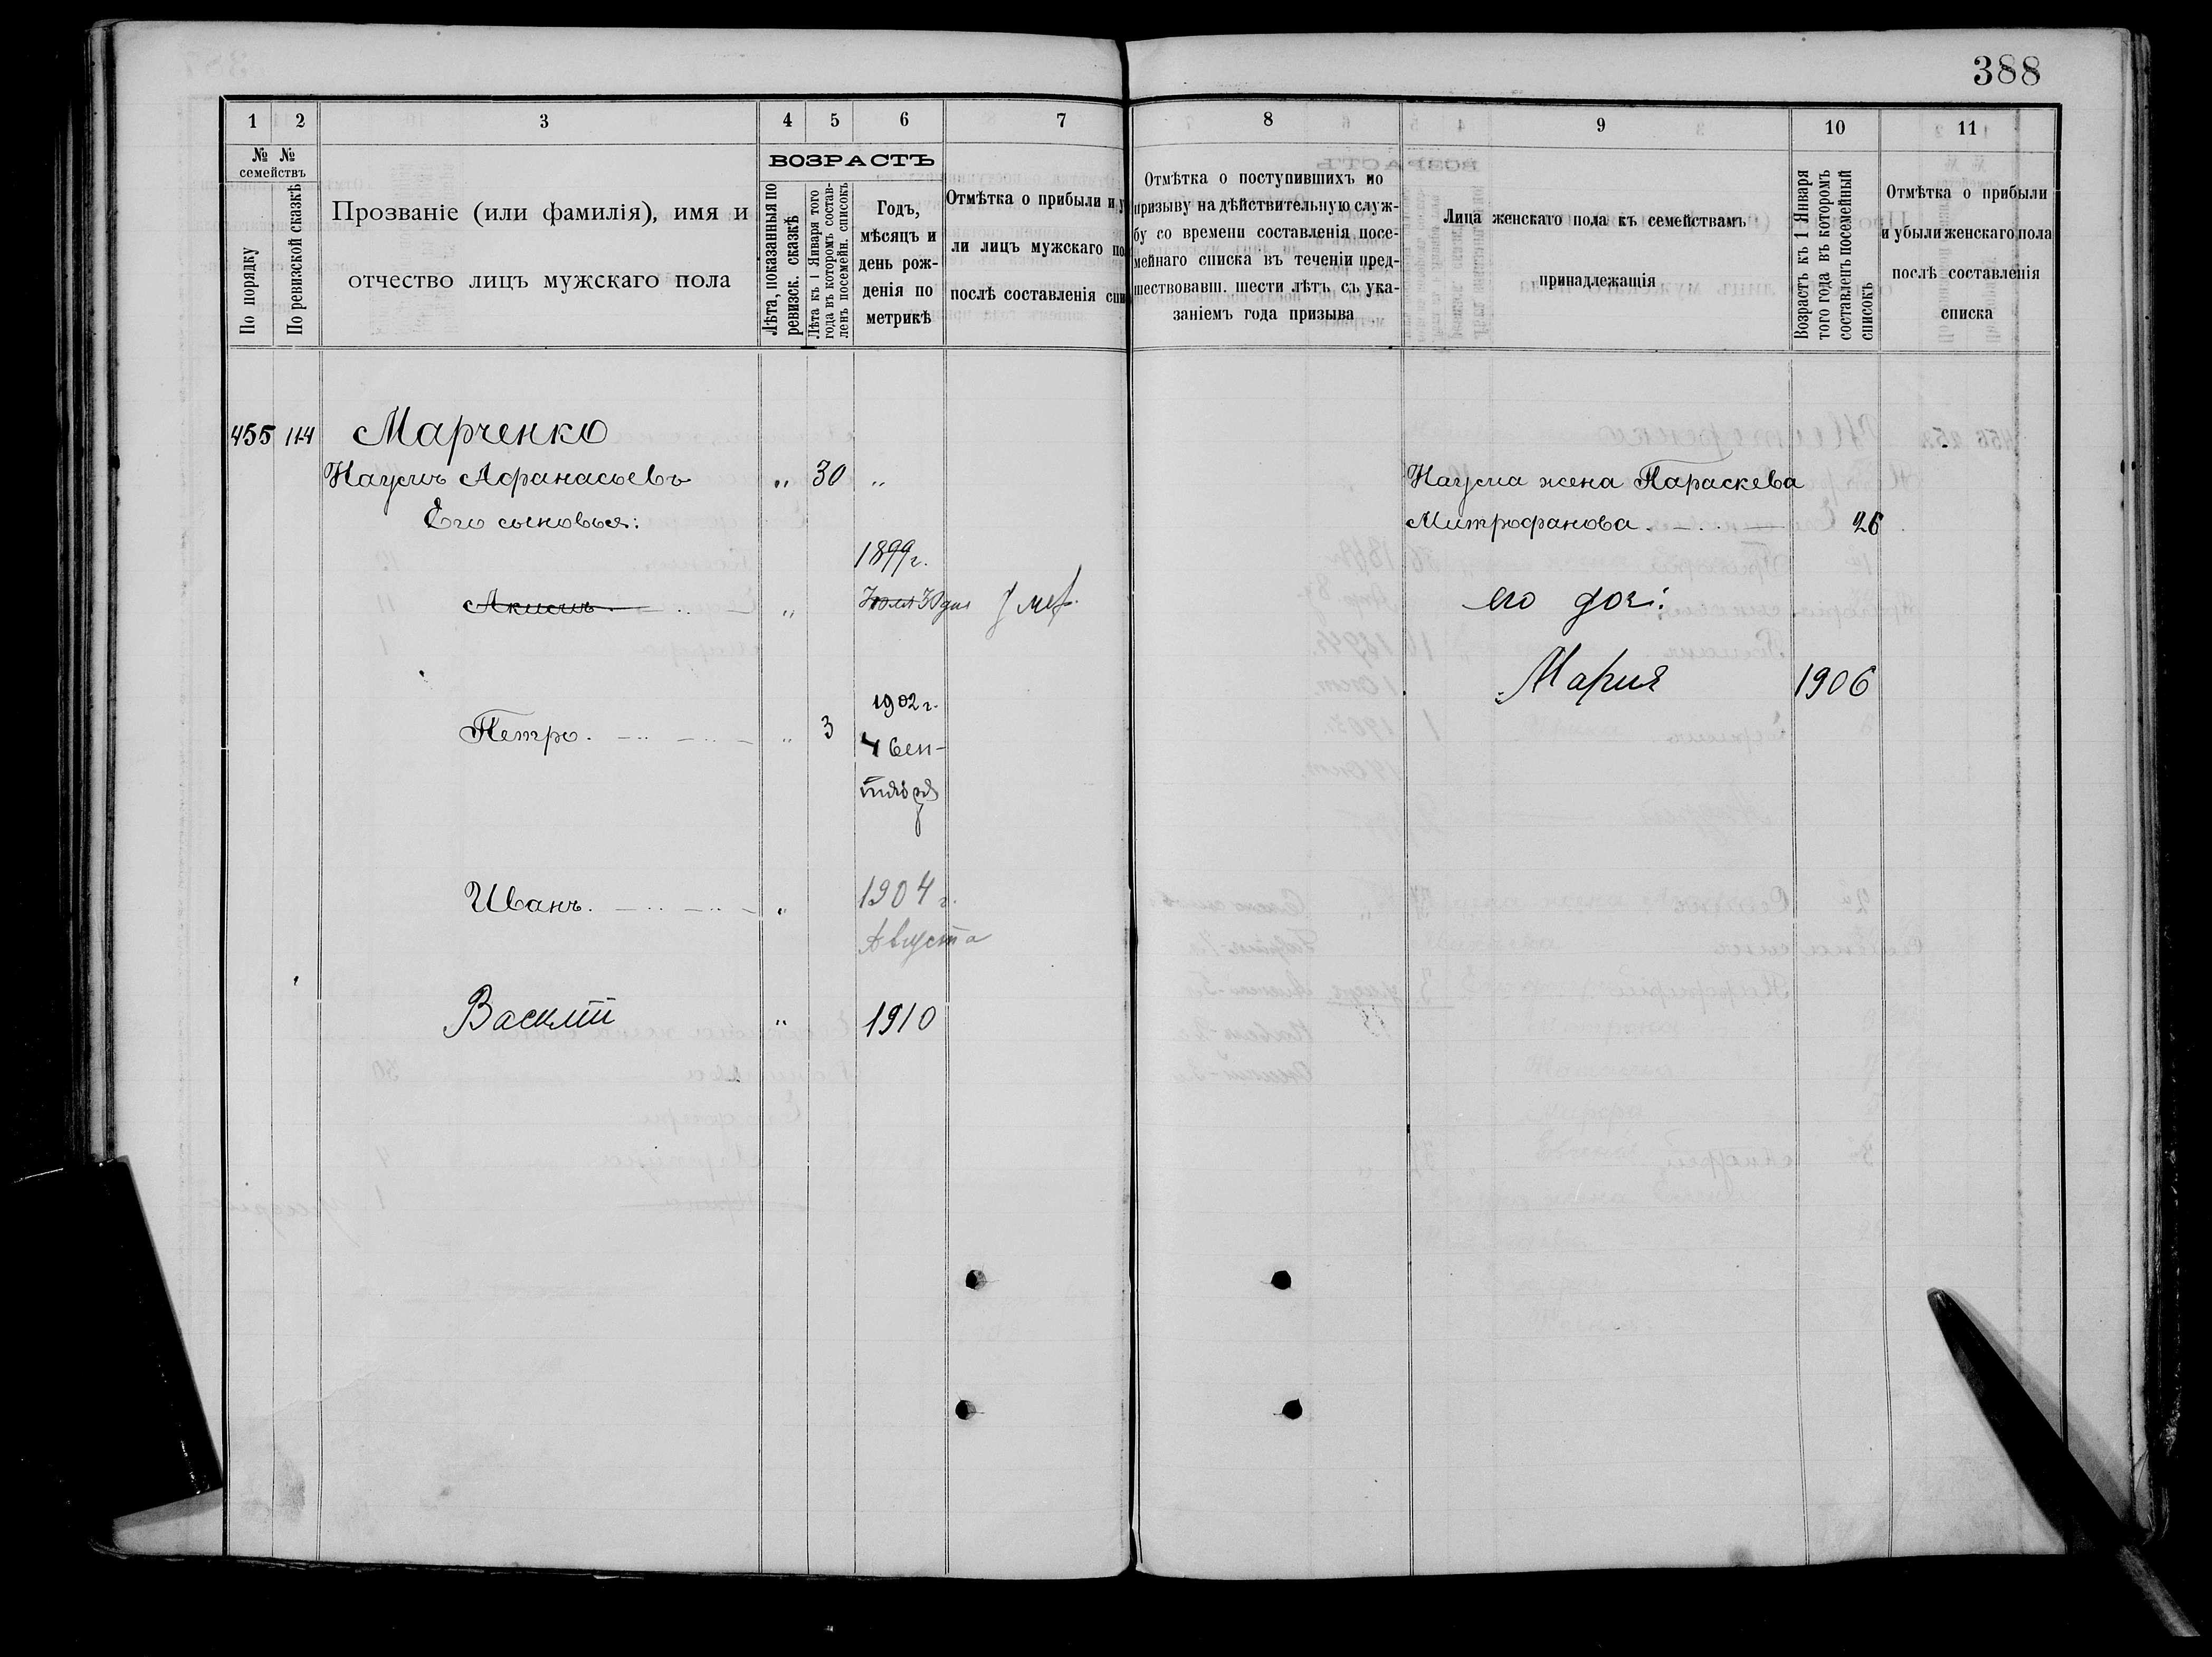 388
1 2 3 4 5 6 7 8 9 10 11
№ № семействъ
По порядку
По ревизской сказкѣ
Прозваніе (или фамилія), имя и
отчество лицъ мужскаго пола
ВОЗРАСТЪ
Лѣта, показанныя по
ревизск. сказкѣ
Лѣта къ 1 Января того
года въ которомъ состав-
ленъ посемейн. списокъ
Годъ,
мѣсяцъ и
день рож-
денія по
метрикѣ
Отмѣтка о прибыли и у
ли лицъ мужскаго по
послѣ составленія спи
Отмѣтка о поступившихъ по
призыву на дѣйствительную служ-
бу со времени составленія посе-
мейнаго списка въ теченіи пред-
шествовавш. шести лѣтъ съ ука-
заніемъ года призыва
Лица женскаго пола къ семействамъ
принадлежащія
Возрастъ къ 1 Января
того года въ которомъ
составленъ посемейный
списокъ
Отмѣтка о прибыли
и убыли женскаго пола
послѣ составленія
списка
455 114 Марченко
Наумъ Афанасьевъ " 30 "
Его сыновья:
1899 г.
Акимъ " Іюля 30 дня Умер
1902 г.
Петро " 3 4 Сен-
тября
Иванъ " 1904 г.
Августа
Василій " 1910
Наума жена Параскева
Митрофанова 26
его доч:
Мария 1906